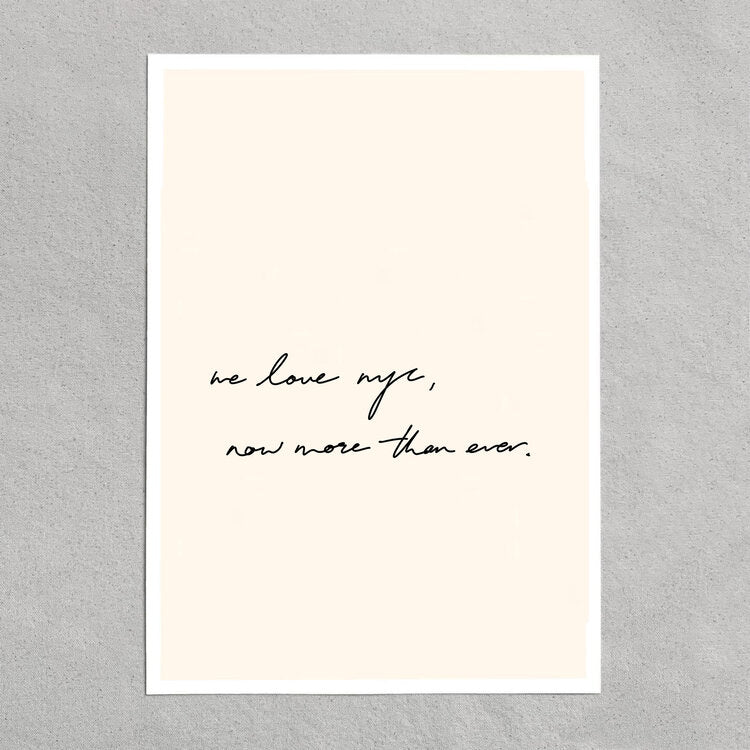 we love nyc,
now more than ever.